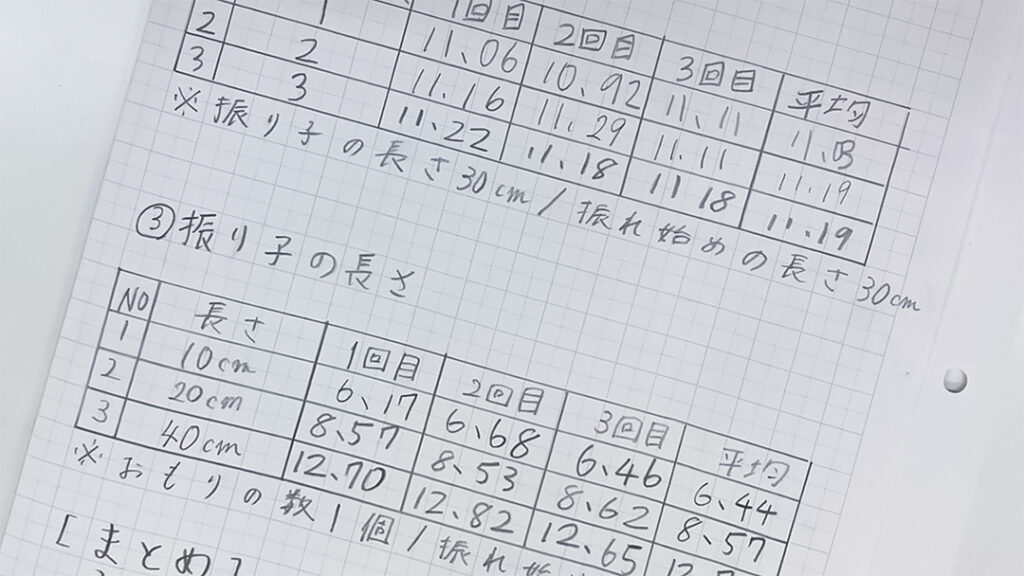 1 1回目 2回目 3回目 平均
2 2 11、06 10、92 11、11 11、03
3 3 11.16 11.29 11.11 11.19
11、22 11、18 11 18 11、19
※振り子の長さ30cm/振れ始めの長さ30cm
③振り子の長さ
NO 長さ 1回目 2回目 3回目 平均
1 10cm 6、17 6、68 6、46 6、44
2 20cm 8、57 8、53 8、62 8、57
3 40cm 12、70 12、82 12、65
※おもりの数1個/振れ
[まとめ]